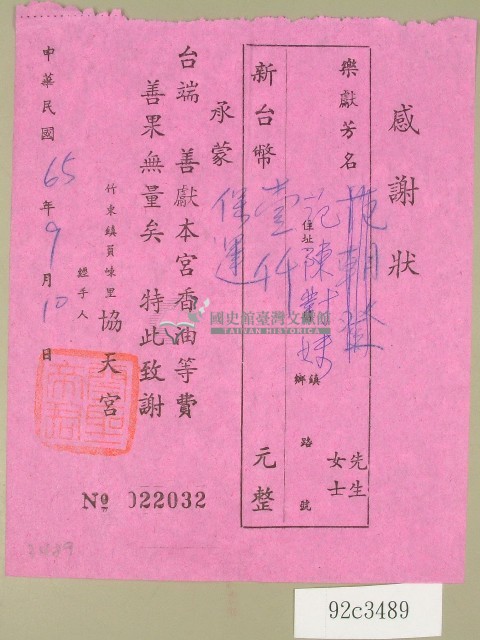 感謝狀
樂獻芳名 范朝燈 先生 女士
住址 范陳對妹 鄉鎮 路 號
新台幣 壹仟 元整
承蒙 保運
台端 善獻本宮香油等費
善果無量矣 特此致謝
竹東鎮員崠里 協天宮
經手人
中華民國 65 年 9 月 10 日
Nº 022032
國史館臺灣文獻館
TAIWAN HISTORICA
92c3489